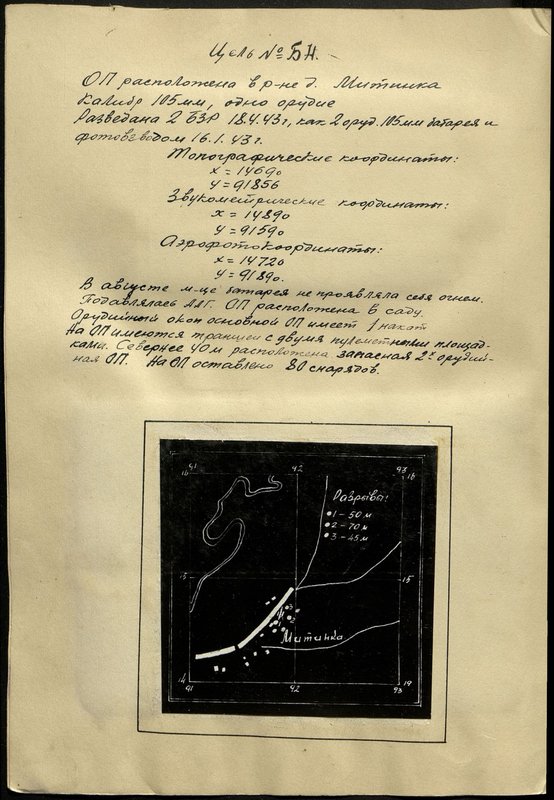 Цель № 5Н.
ОП расположена в р-не д. Митинка
Калибр 105мм, одно орудие
Разведана 2 БЗР 18.4.43г, как 2 оруд. 105мм батарея и
фотовзводом 16.1.43г.
Топографические координаты:
x = 14690
y = 91856
Звукометрические координаты:
x = 14890
y = 91590
Аэрофотокоординаты:
x = 14720
y = 91890.
В августе м-це батарея не проявляла себя огнем.
Подавлялась ОП расположена в саду.
Орудийный окоп основной ОП имеет 1 накат
На ОП имеются траншеи с двумя пулеметными площад-
ками. Севернее 40м расположена запасная 2х орудий-
ная ОП. На ОП оставлено 80 снарядов.
91 92 93
16 16
Разрывы:
1 - 50 м
2 - 70 м
3 - 45 м
15 15
Митинка
14 19
91 92 93